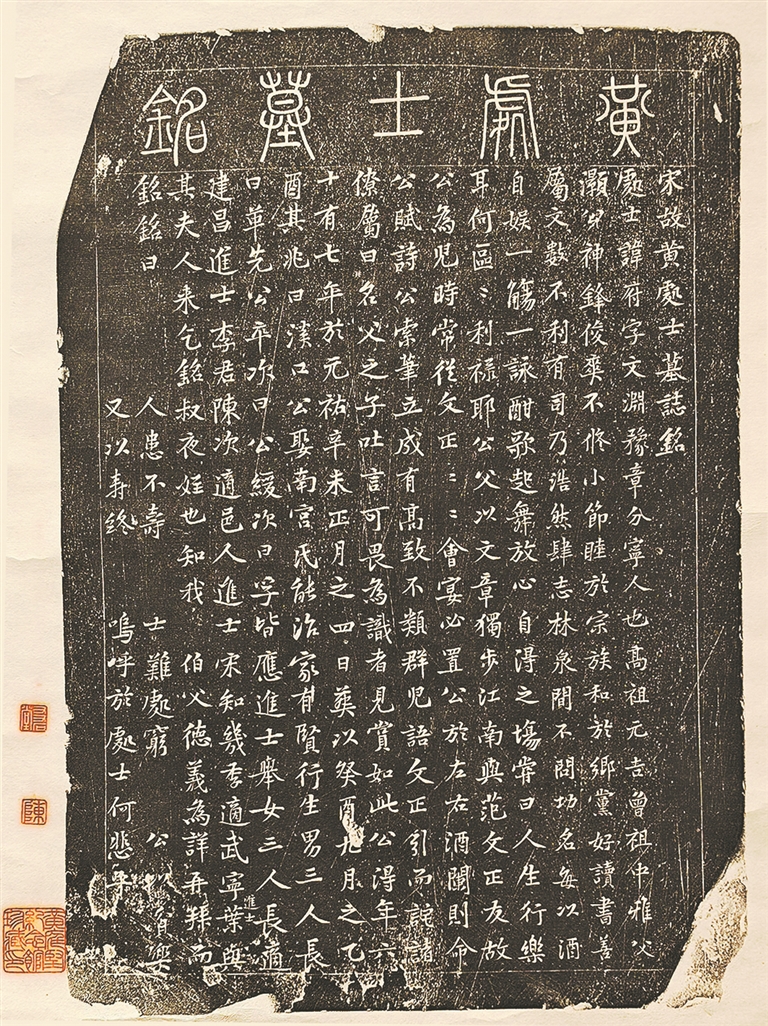 黃處士墓銘
宋故黃處士墓誌銘
處士諱府字文淵豫章分寧人也高祖元吉曾祖中雅父
灝公神鋒俊爽不修小節睦於宗族和於鄉黨好讀書善
屬文數不利有司乃浩然肆志林泉間不問功名每以酒
自娛一觴一詠酣歌起舞放心自得之場常曰人生行樂
耳何區〻利祿耶公父以文章獨步江南與范文正友故
公為兒時常從文正〻〻會宴必置公於左右酒闌則命
公賦詩公索筆立成有高致不類群兒語文正引而詫諸
僚屬曰名父之子吐言可畏為識者見賞如此公得年六
十有七年於元祐辛未正月之四日葬以癸酉九月之乙
酉其兆曰溪口公娶南宮氏能治家有賢行生男三人長
曰華先公卒次曰公緩次曰孚皆應進士舉女三人長適
建昌進士李君陳次適邑人進士宋知幾季適武寧進士葉與
其夫人來乞銘叔夜姪也知我 伯父德義為詳再拜而
銘銘曰
人患不壽 士難處窮 公 貧樂
又以壽終 嗚呼於處士何悲乎